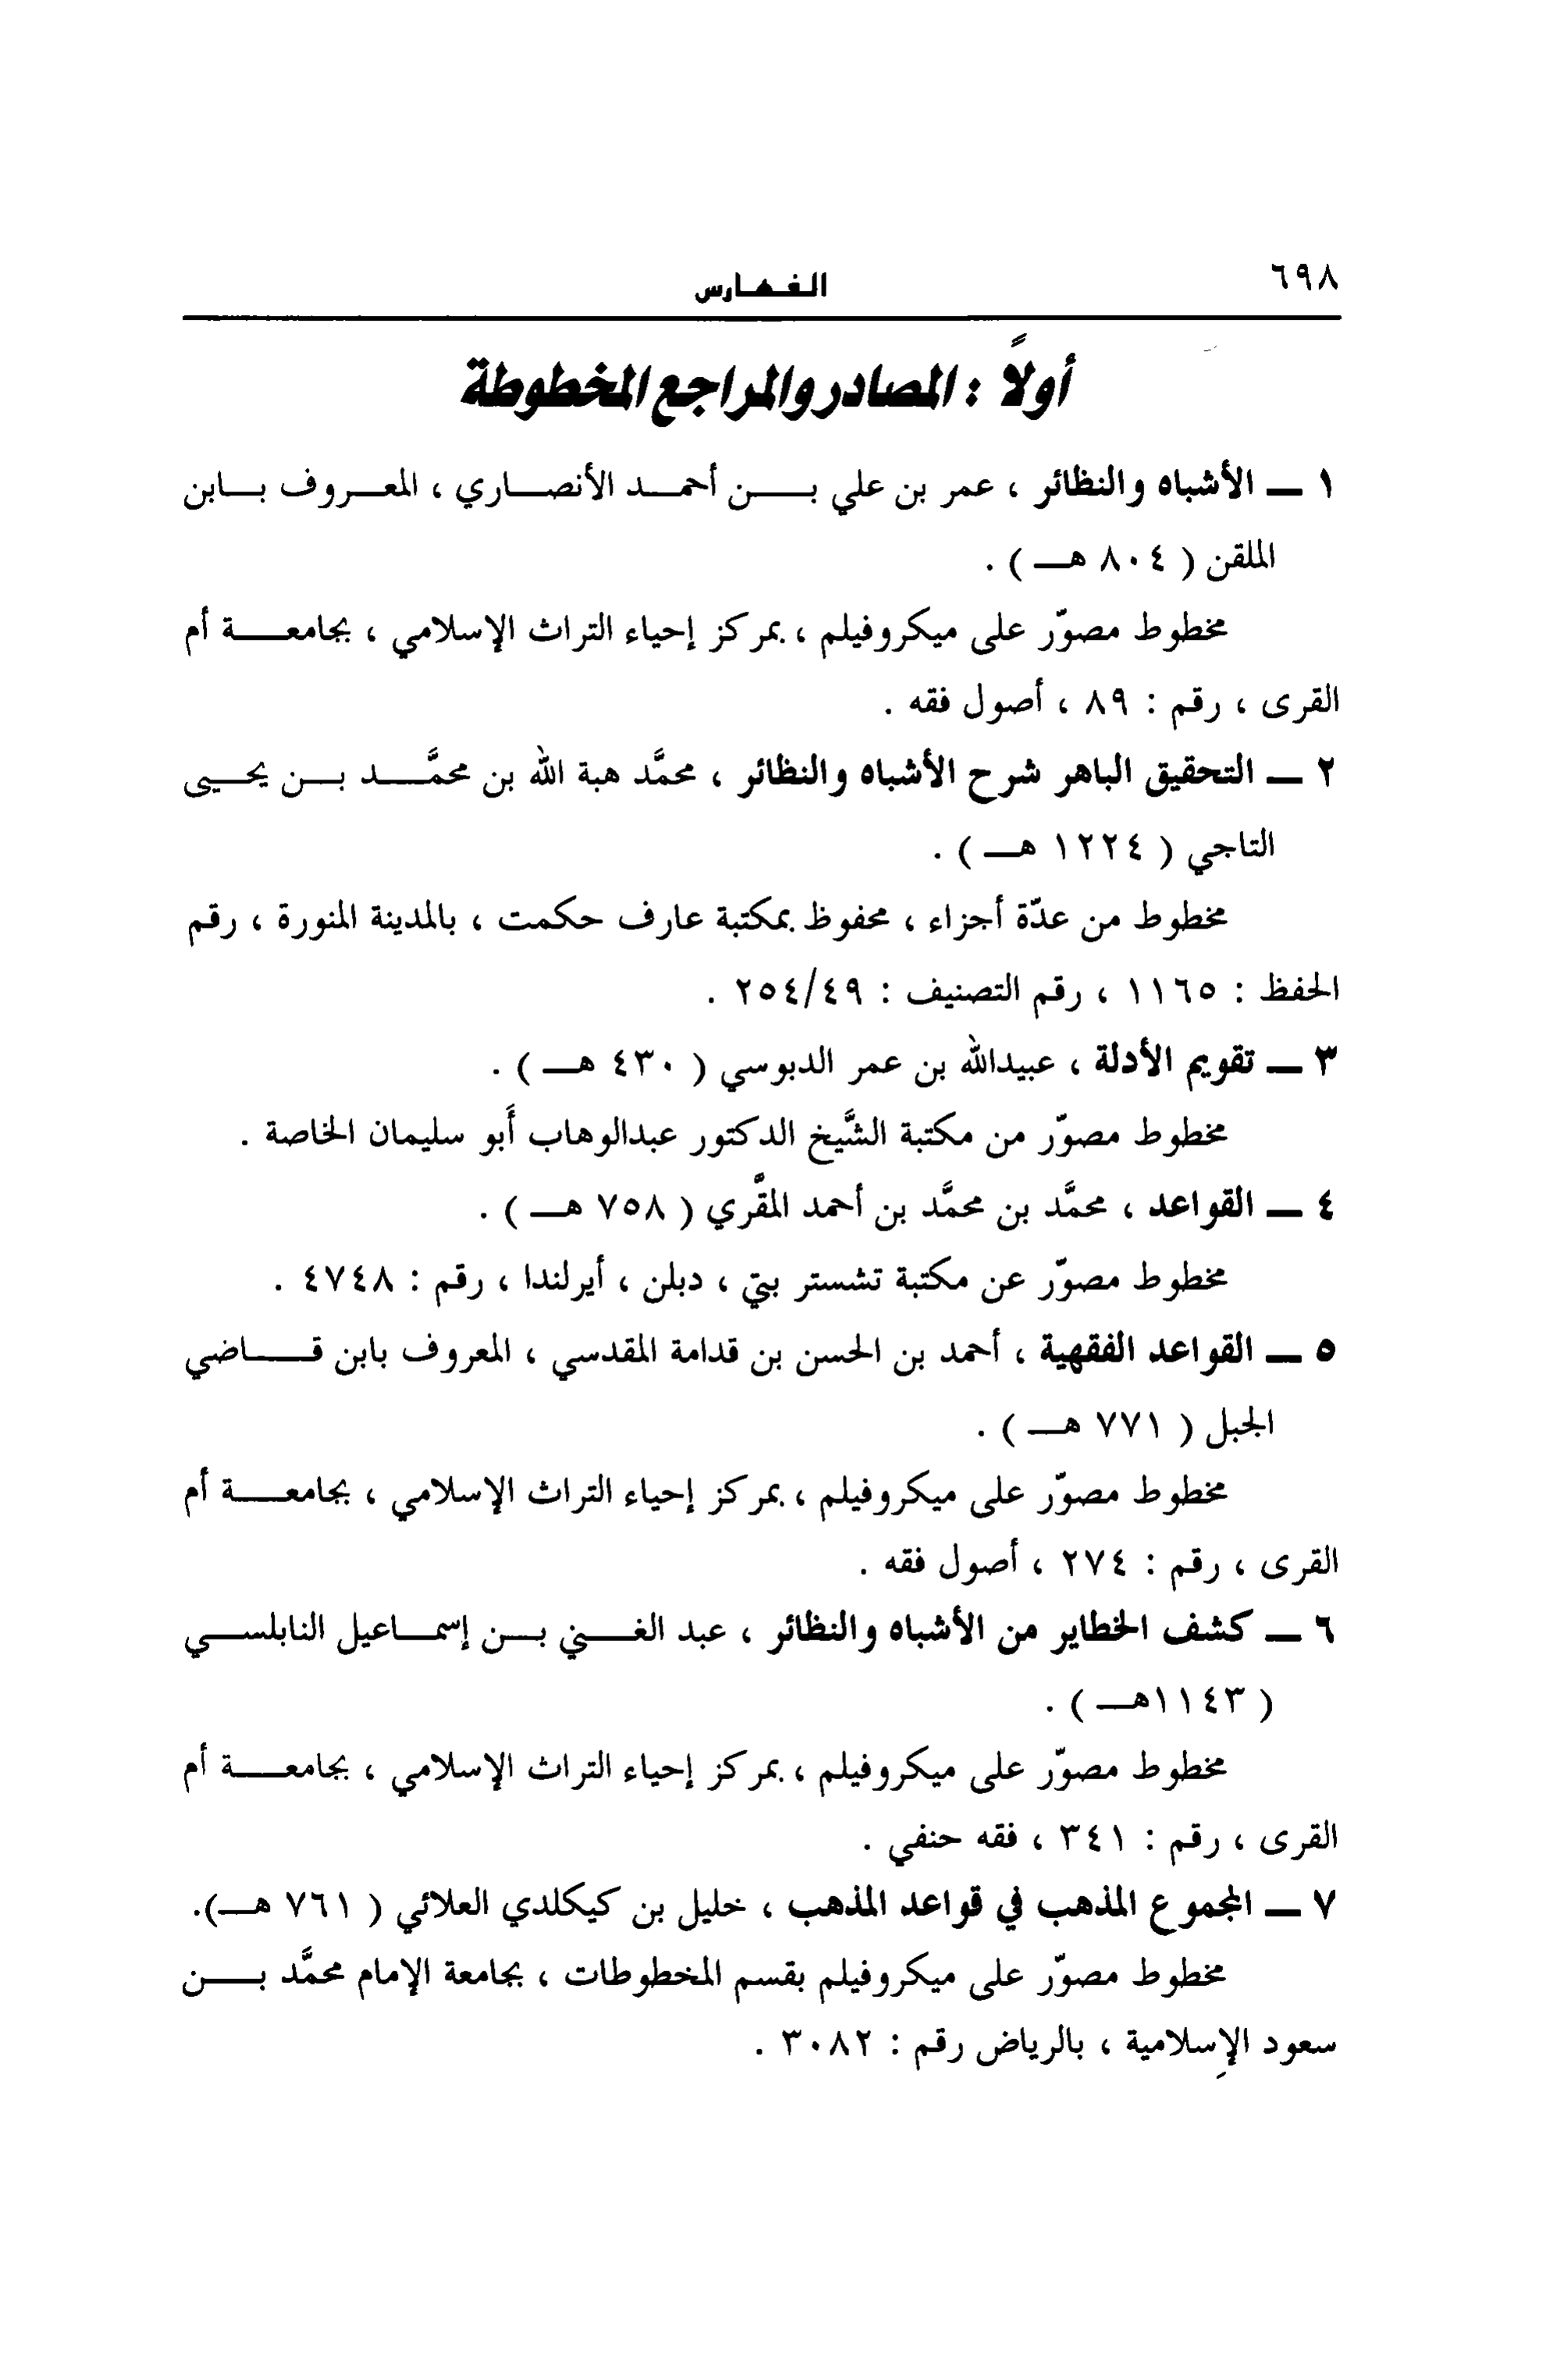 ٦٩٨
الفهارس
أولاً : المصادر والمراجع المخطوطة
١ ــ الأشباه والنظائر ، عمر بن علي بن أحمد الأنصاري ، المعروف بابن
الملقن ( ٨٠٤ هـ ) .
مخطوط مصوّر على ميكروفيلم ، بمركز إحياء التراث الإسلامي ، بجامعة أم
القرى ، رقم : ٨٩ ، أصول فقه .
٢ ــ التحقيق الباهر شرح الأشباه والنظائر ، محمَّد هبة الله بن محمَّد بن يحيى
التاجي ( ١٢٢٤ هـ ) .
مخطوط من عدّة أجزاء ، محفوظ بمكتبة عارف حكمت ، بالمدينة المنورة ، رقم
الحفظ : ١١٦٥ ، رقم التصنيف : ٢٥٤/٤٩ .
٣ ــ تقويم الأدلة ، عبيدالله بن عمر الدبوسي ( ٤٣٠ هـ ) .
مخطوط مصوّر من مكتبة الشَّيخ الدكتور عبدالوهاب أَبو سليمان الخاصة .
٤ ــ القواعد ، محمَّد بن محمَّد بن أحمد المقَّري ( ٧٥٨ هـ ) .
مخطوط مصوّر عن مكتبة تشستر بتي ، دبلن ، أيرلندا ، رقم : ٤٧٤٨ .
٥ ــ القواعد الفقهية ، أحمد بن الحسن بن قدامة المقدسي ، المعروف بابن قاضي
الجبل ( ٧٧١ هـ ) .
مخطوط مصوّر على ميكروفيلم ، بمركز إحياء التراث الإسلامي ، بجامعة أم
القرى ، رقم : ٢٧٤ ، أصول فقه .
٦ ــ كشف الخطاير من الأشباه والنظائر ، عبد الغني بن إسماعيل النابلسي
( ١١٤٣هـ ) .
مخطوط مصوّر على ميكروفيلم ، بمركز إحياء التراث الإسلامي ، بجامعة أم
القرى ، رقم : ٣٤١ ، فقه حنفي .
٧ ــ المجموع المذهب في قواعد المذهب ، خليل بن كيكلدي العلائي ( ٧٦١ هـ ).
مخطوط مصوّر على ميكروفيلم بقسم المخطوطات ، بجامعة الإمام محمَّد بن
سعود الإسلامية ، بالرياض رقم : ٣٠٨٢ .